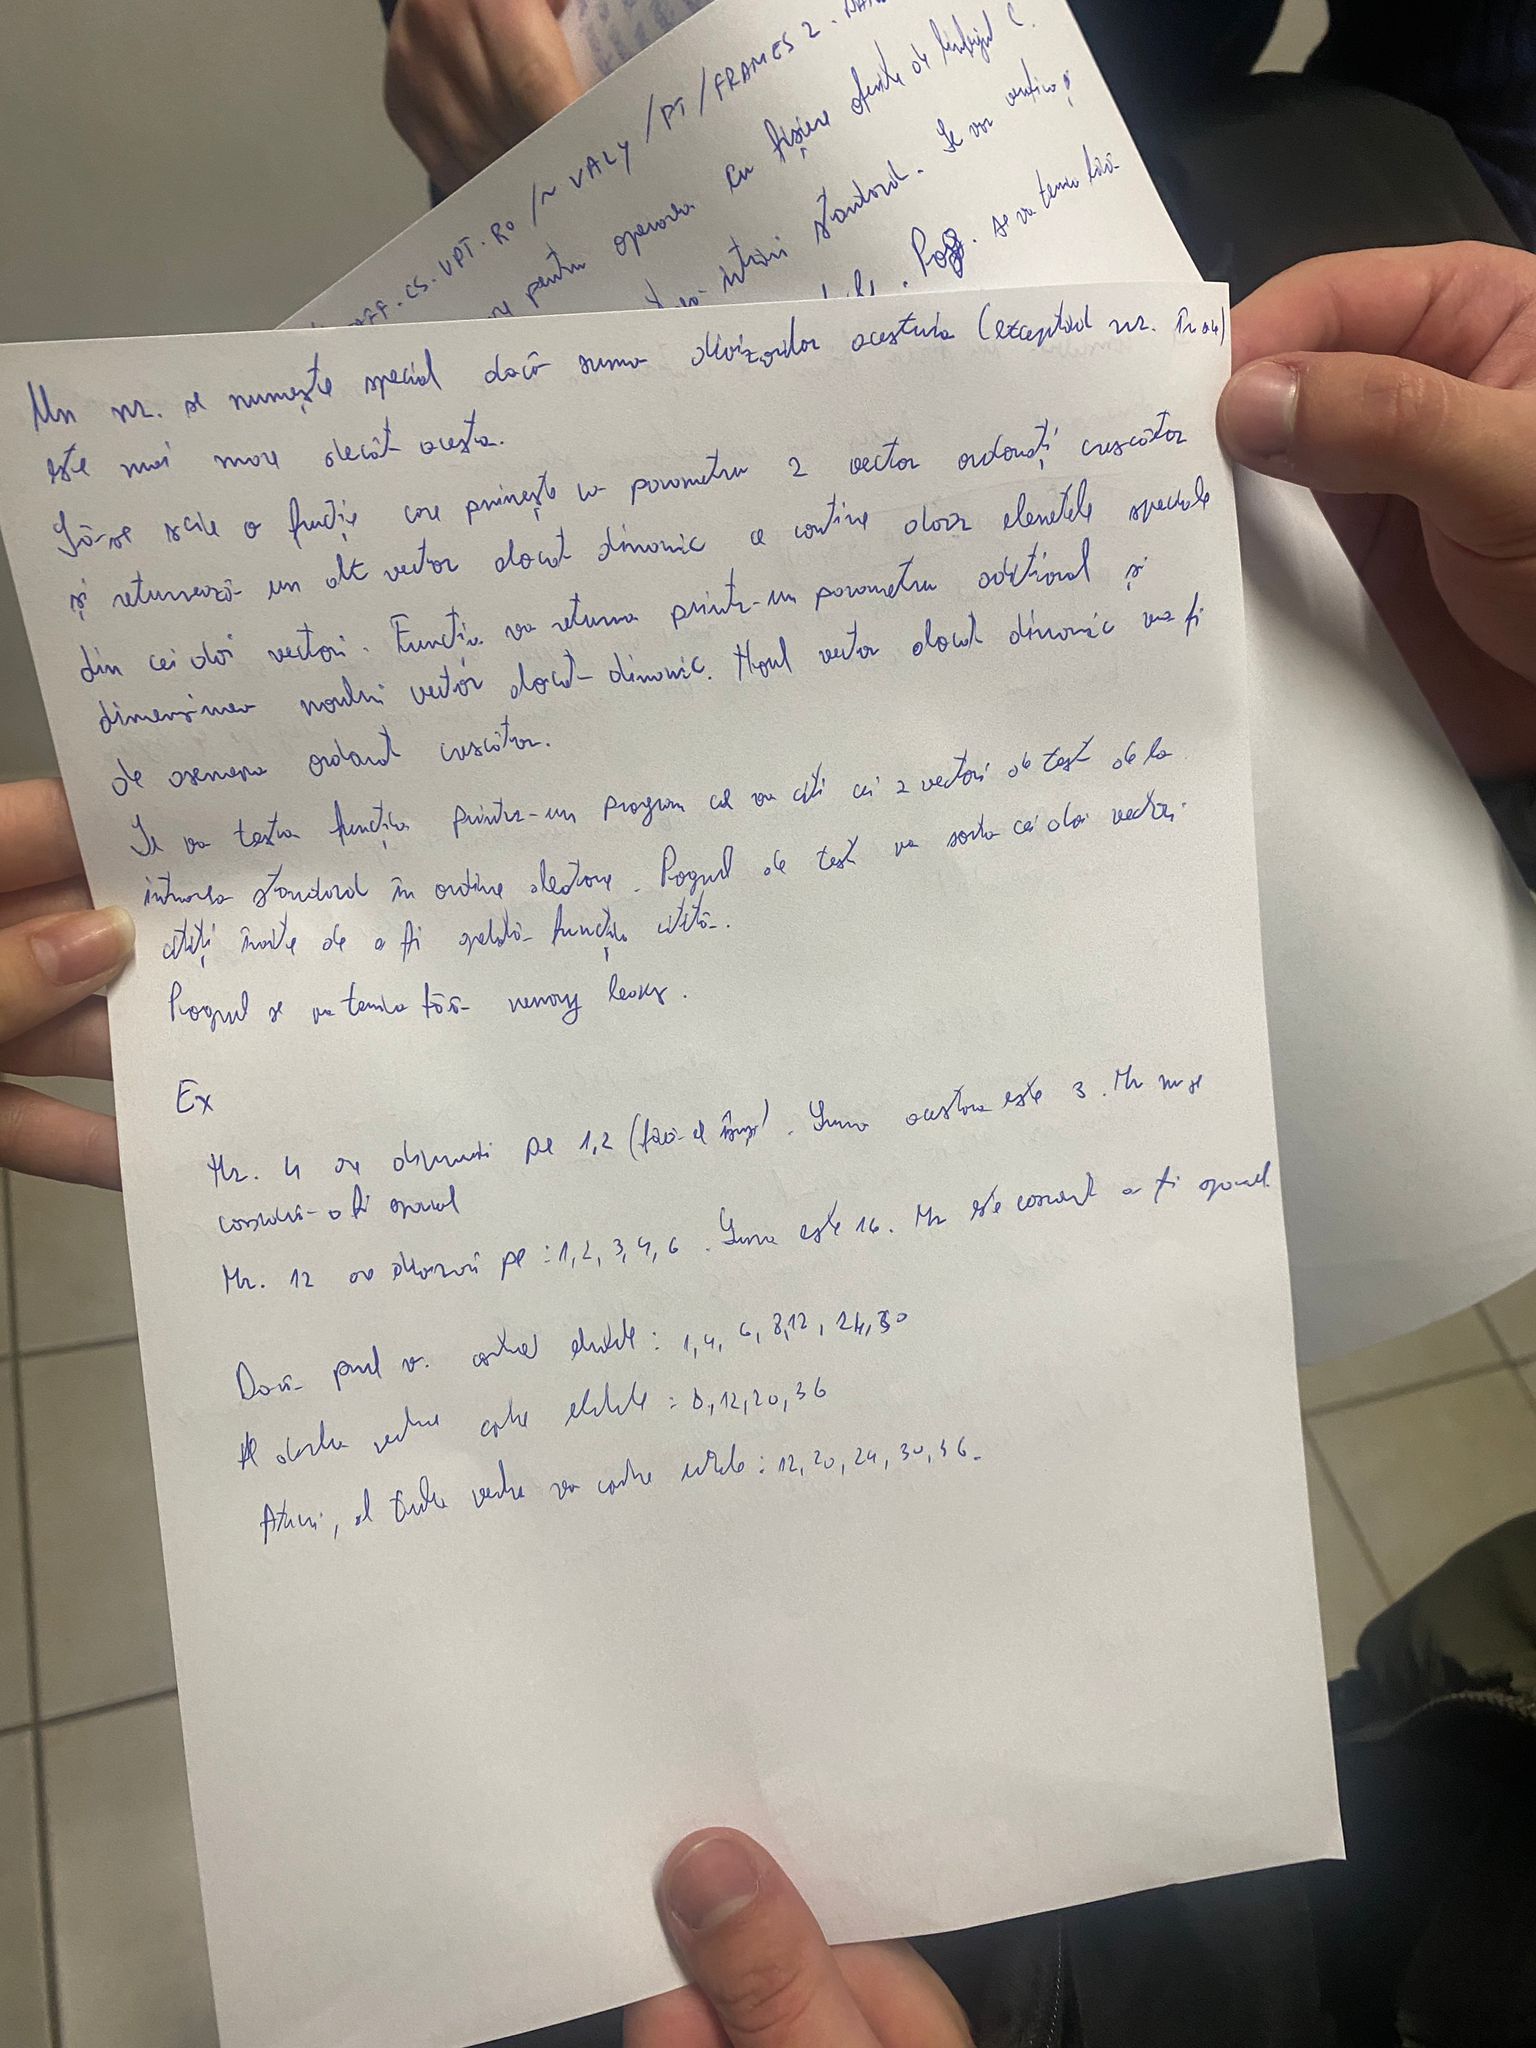 AFF.CS.UPT.RO/~VALY/PT/FRAMES2.
pentru operarea cu fișiere oferite de limbajul C.
intrări standard. Se va verifica și
Prog. se va temina fără
Un nr. se numește special dacă suma divizorilor acestuia (exceptând nr. în
este mai mare decât acesta.
Să-se scrie o funcție care primește ca parametru 2 vector ordonați crescător
și returnează un alt vector alocat dinamic ce contine doar elemetele speciale
din cei doi vectori. Funcția va returna printr-un parametru aditional și
dimensiunea noului vector alocat dinamic. Noul vector alocat dinamic va fi
de asemenea ordonat crescător.
Se va testa funcția printr-un program ce va citi cei 2 vectori de test de la
intrarea standard în ordine aleatore. Progrul de test va sorta cei doi vectori
citiți înaite de a fi apelată funcția citită.
Progrul se va temina fără memory leaks.
Ex
Nr. 4 are pe 1,2 (fără el însuși). Suma acestora este 3. Nr nu se
consideră a fi special
Nr. 12 are divizorii pe : 1, 2, 3, 4, 6. Suma este 16. Nr este considerat a fi special.
Dacă primul v. contine : 1, 4, 6, 8, 12, 24, 30
Al doilea vector : 8, 12, 20, 36
Atunci, al treilea vector va : 12, 20, 24, 30, 36.